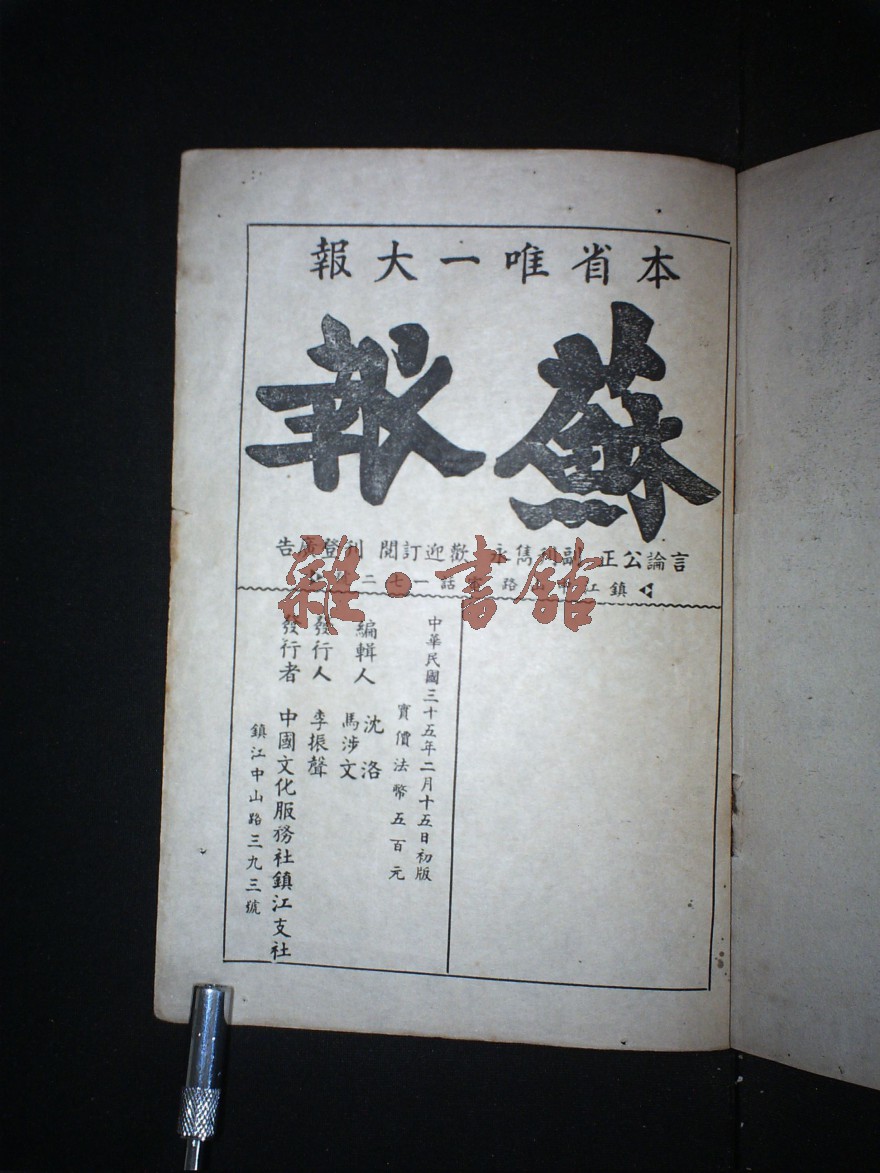 本省唯一大報
蘇報
言論公正 副刊雋永 歡迎訂閱 刊登廣告
鎮江中山路 電話一七二號
雜·書館
中華民國三十五年二月十五日初版
實價法幣五百元
編輯人 沈洛 馬涉文
發行人 李振聲
發行者 中國文化服務社鎮江支社
鎮江中山路三九三號